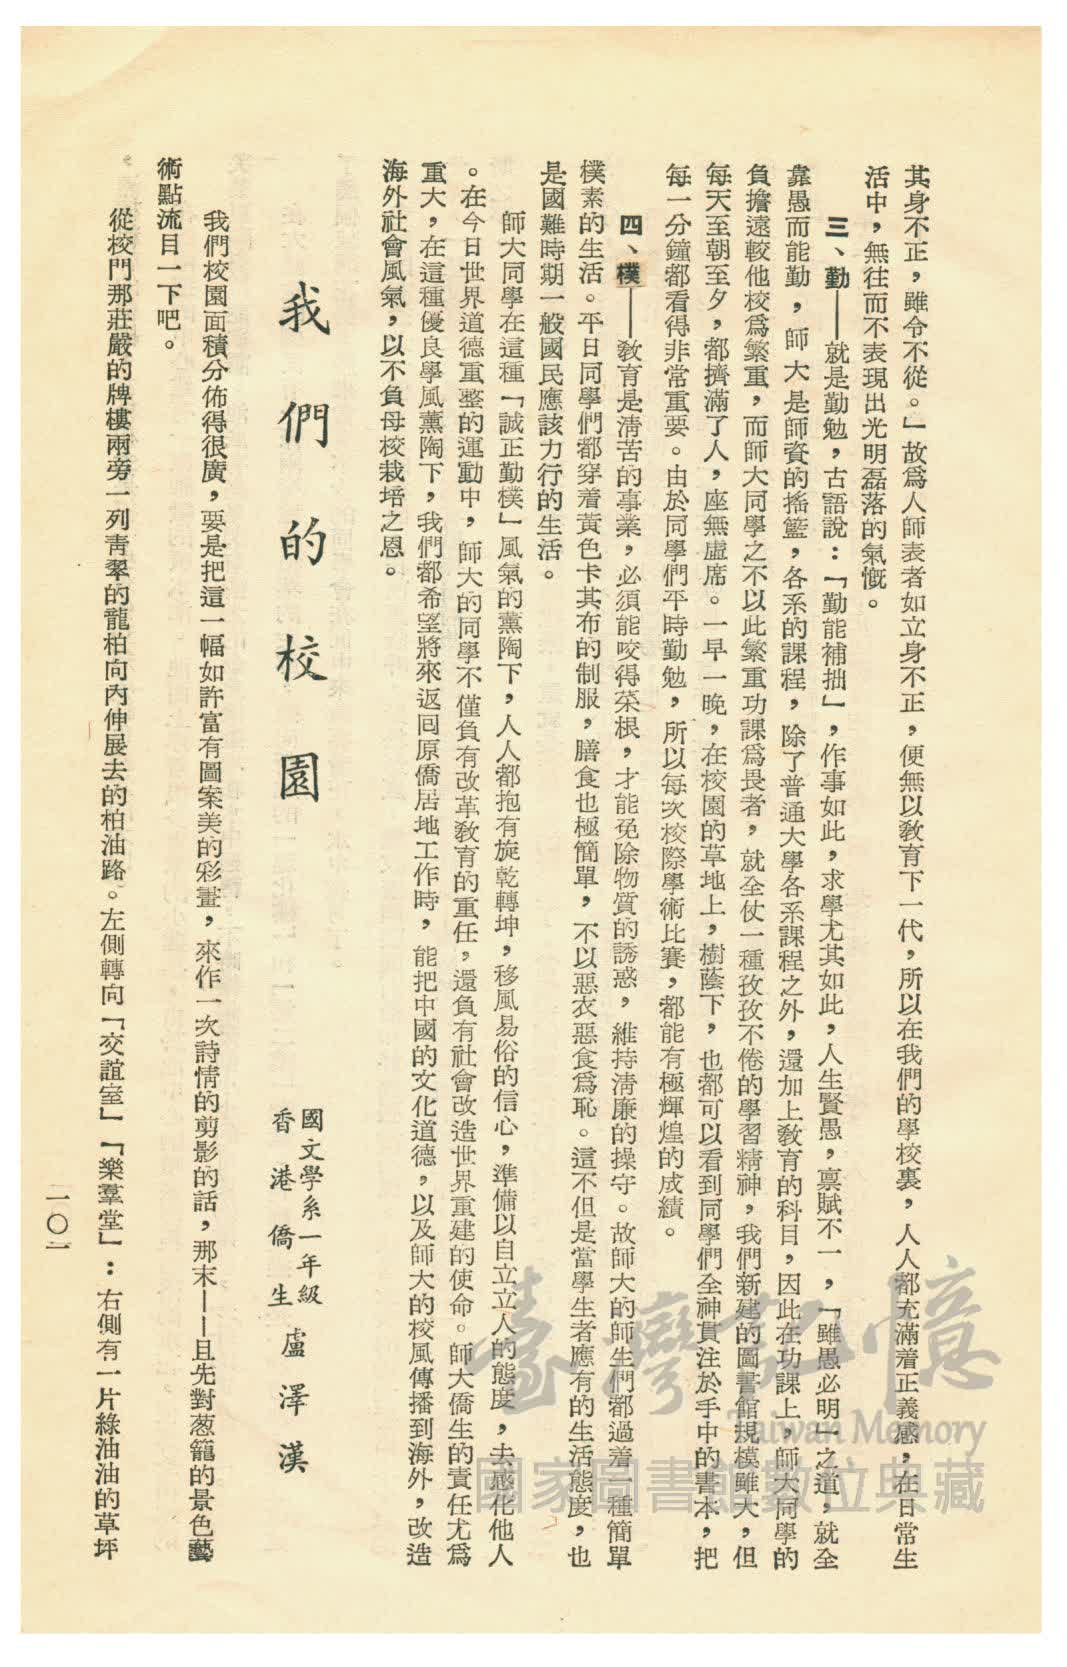 其身不正，雖令不從。」故爲人師表者如立身不正，便無以教育下一代，所以在我們的學校裏，人人都充滿着正義感，在日常生
活中，無往而不表現出光明磊落的氣慨。
三、勤——就是勤勉，古語說：「勤能補拙」，作事如此，求學尤其如此，人生賢愚，禀賦不一，「雖愚必明」之道，就全
靠愚而能勤，師大是師資的搖籃，各系的課程，除了普通大學各系課程之外，還加上教育的科目，因此在功課上，師大同學的
負擔遠較他校爲繁重，而師大同學之不以此繁重功課爲畏者，就全仗一種孜孜不倦的學習精神，我們新建的圖書館規模雖大，但
每天至朝至夕，都擠滿了人，座無虛席。一早一晚，在校園的草地上，樹蔭下，也都可以看到同學們全神貫注於手中的書本，把
每一分鐘都看得非常重要。由於同學們平時勤勉，所以每次校際學術比賽，都能有極輝煌的成績。
四、樸——教育是淸苦的事業，必須能咬得菜根，才能免除物質的誘惑，維持淸廉的操守。故師大的師生們都過着一種簡單
樸素的生活。平日同學們都穿着黃色卡其布的制服，膳食也極簡單，不以惡衣惡食爲恥。這不但是當學生者應有的生活態度，也
是國難時期一般國民應該力行的生活。
師大同學在這種「誠正勤樸」風氣的薰陶下，人人都抱有旋乾轉坤，移風易俗的信心，準備以自立立人的態度，去感化他人
。在今日世界道德重整的運動中，師大的同學不僅負有改革教育的重任，還負有社會改造世界重建的使命。師大僑生的責任尤爲
重大，在這種優良學風薰陶下，我們都希望將來返囘原僑居地工作時，能把中國的文化道德，以及師大的校風傳播到海外，改造
海外社會風氣，以不負母校栽培之恩。
我們的校園
國文學系一年級
香港僑生
盧澤漢
我們校園面積分佈得很廣，要是把這一幅如許富有圖案美的彩畫，來作一次詩情的剪影的話，那末——且先對葱籠的景色藝
術點流目一下吧。
從校門那莊嚴的牌樓兩旁一列青翠的龍柏向內伸展去的柏油路。左側轉向「交誼室」「樂羣堂」：右側有一片綠油油的草坪
一〇一
臺灣記憶
Taiwan Memory
國家圖書館數位典藏